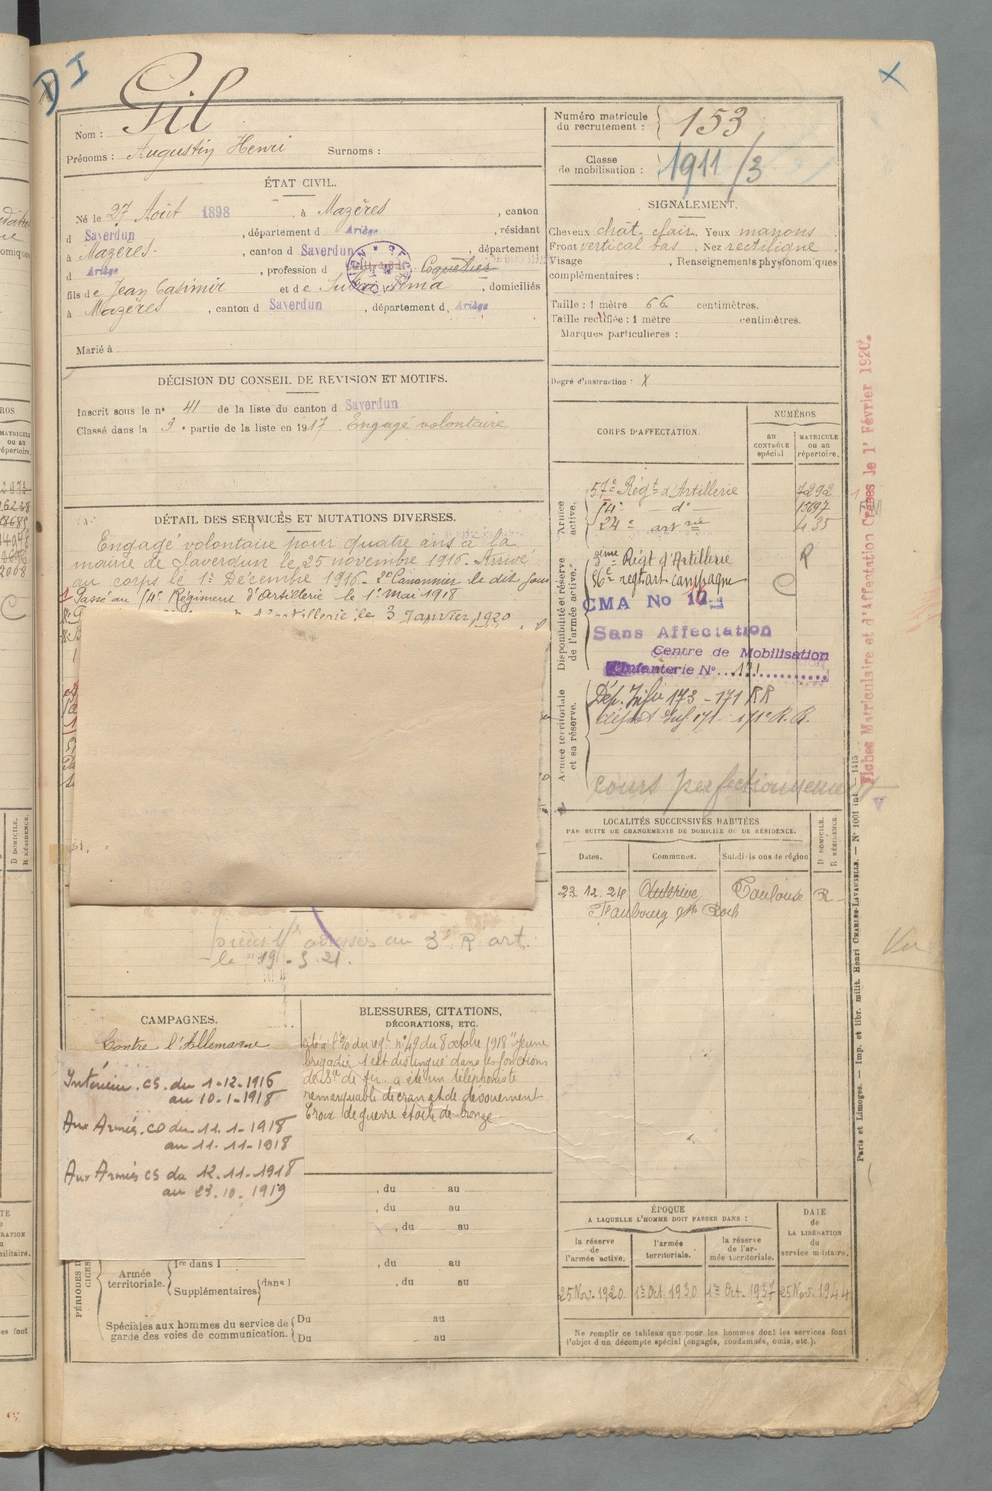 D I
X
Nom : Gil
Prénoms : Augustin Henri Surnoms :
Numéro matricule du recrutement : 153
Classe de mobilisation : 1911/3
ÉTAT CIVIL.
Né le 27 Août 1898, à Mazères, canton
d Saverdun, département d Ariège, résidant
à Mazères, canton d Saverdun, département
d Ariège, profession d Coquetier
fils de Jean Casimir et de , domiciliés
à Mazères, canton d Saverdun, département d Ariège
Marié à
SIGNALEMENT.
Cheveux chat. clair. Yeux marrons
Front vertical bas. Nez rectiligne
Visage . Renseignements physionomiques
complémentaires :
Taille : 1 mètre 66 centimètres.
Taille rectifiée : 1 mètre centimètres.
Marques particulières :
Degré d'instruction : X
DÉCISION DU CONSEIL DE REVISION ET MOTIFS.
Inscrit sous le n° 41 de la liste du canton d Saverdun
Classé dans la 3e partie de la liste en 1917 Engagé volontaire
DÉTAIL DES SERVICES ET MUTATIONS DIVERSES.
Engagé volontaire pour quatre ans à la
mairie de Saverdun le 25 novembre 1916. Arrivé
au corps le 1er Décembre 1916. 2e Canonnier le dit jour
Passé au 14e Régiment d'Artillerie le 1er mai 1918
d'Artillerie le 3 Janvier 1920
adressés au 3e R art.
le 19 . 5. 21.
CORPS D'AFFECTATION.
NUMÉROS
au CONTRÔLE spécial
MATRICULE ou au répertoire.
Armée active.
57e Régt d'Artillerie 7292
14e d° 15697
24e art rie 435
Disponibilité et réserve de l'armée active.
3ème Régt d'Artillerie R
56e regt art campagne C
CMA No
Sans Affectation
Centre de Mobilisation
Infanterie N° 171
Armée territoriale et sa réserve.
Dép. Infie 173 - 171 RR
dépôt Inf 171 - 171e R.R.
cours perfectionnement
Fiches Matriculaire et d'Affectation Créées le 1er Février 1920.
Vu
LOCALITÉS SUCCESSIVES HABITÉES
PAR SUITE DE CHANGEMENTS DE DOMICILE OU DE RÉSIDENCE.
Dates. Communes. Subdivisions de région D DOMICILE. R RÉSIDENCE.
23.12.24 Auterive Toulouse R
Faubourg St Roch
CAMPAGNES.
Contre l'Allemagne
Intérieur. CS. du 1-12-1916
au 10-1-1918
Aux Armées. CD du 11-1-1918
au 11-11-1918
Aux Armées CS du 12-11-1918
au 23-10-1919
BLESSURES, CITATIONS,
DÉCORATIONS, ETC.
Cité à l'% du regt n°49 du 8 octobre 1918 "Jeune
brigadier s'est distingué dans les fonctions
de a été un téléphoniste
remarquable de cran et de dévouement
Croix de guerre étoile de bronze
, du au
, du au
, du au
Armée territoriale.
1re dans l , du au
Supplémentaires dans l , du au
Spéciales aux hommes du service de
garde des voies de communication.
Du au
Du au
ÉPOQUE
A LAQUELLE L'HOMME DOIT PASSER DANS :
la réserve de l'armée active. l'armée territoriale. la réserve de l'armée territoriale.
DATE de LA LIBÉRATION du service militaire.
25 Nov. 1920 1er Oct. 1930 1er Oct. 1937 25 Nov. 1944
Ne remplir ce tableau que pour les hommes dont les services font
l'objet d'un décompte spécial (engagés, condamnés, omis, etc.).
Paris et Limoges. — Imp. et libr. milit. Henri CHARLES-LAVAUZELLE. — N° 1001 int. — 1415